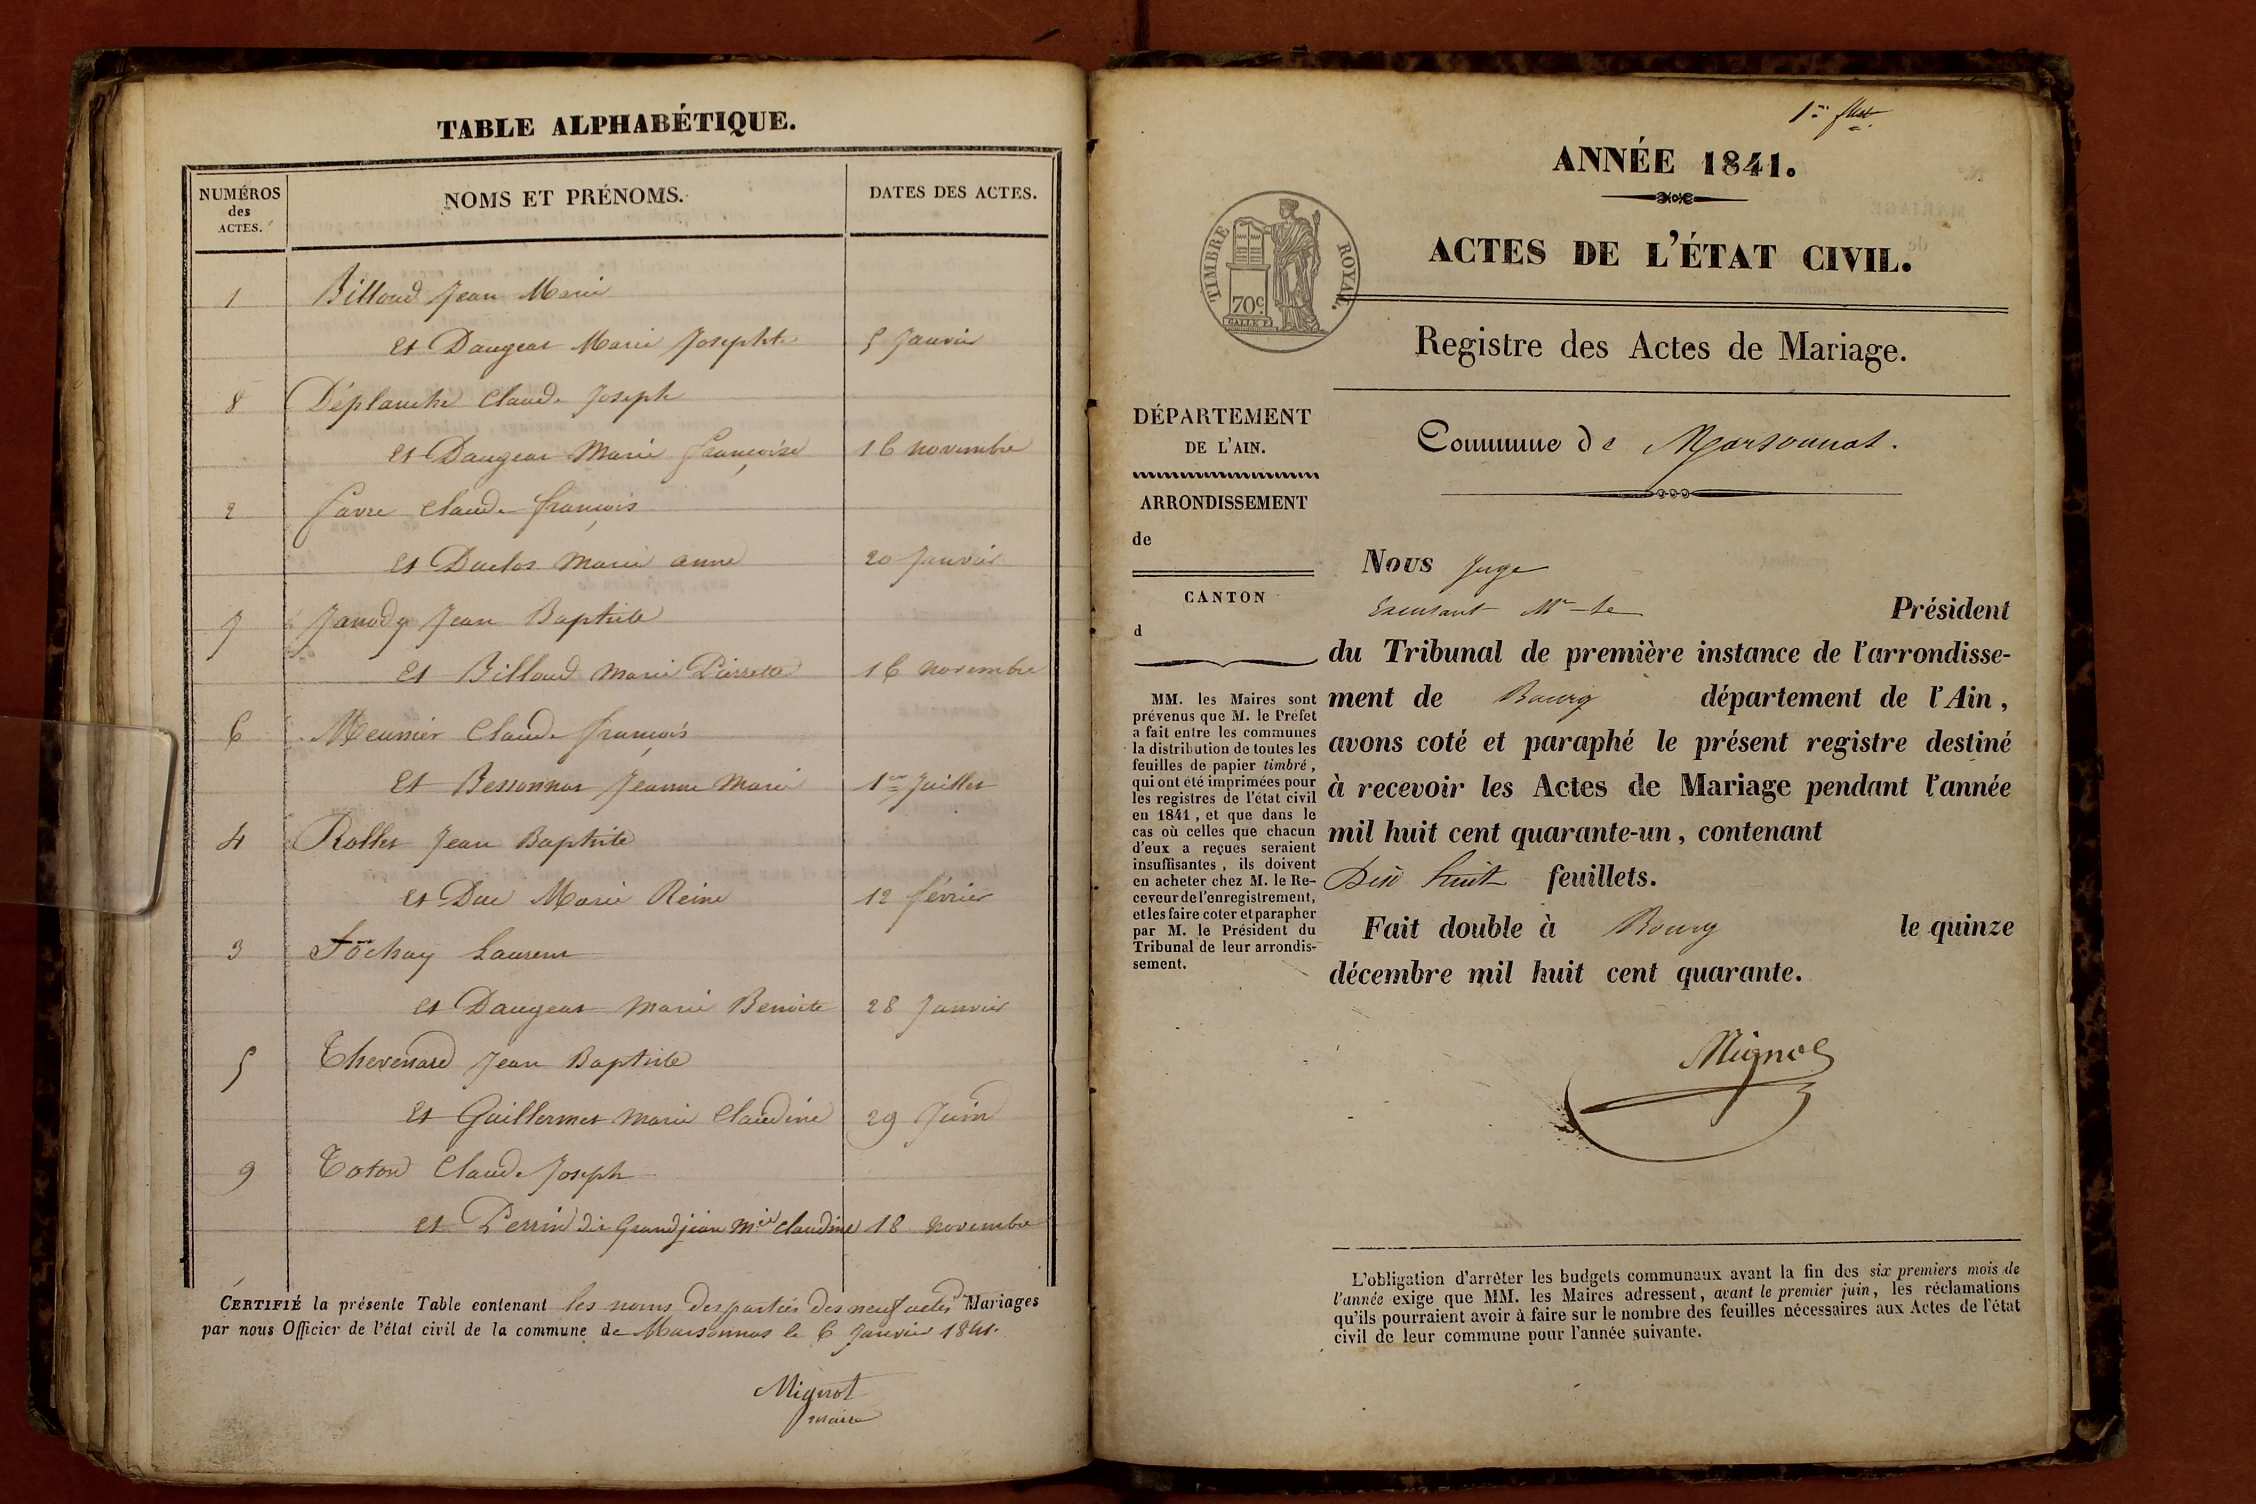 TABLE ALPHABÉTIQUE.
NUMÉROS des ACTES.
NOMS ET PRÉNOMS.
DATES DES ACTES.
1 Billoud Jean Marie
et Daugeat Marie Josephte 5 Janvier
8 Déplanche Claude Joseph
et Daugeat Marie Françoise 16 novembre
2 favre Claude françois
et Duclos Marie anne 20 Janvier
7 Janody Jean Baptiste
et Billoud Marie Pierrette 16 novembre
6 Meunier Claude françois
et Bessonnat Jeanne Marie 1er Juillet
4 Rollet Jean Baptiste
et Duc Marie Reine 12 février
3 Sochay Laurent
et Daugeat Marie Benoite 28 Janvier
5 Thevenard Jean Baptiste
et Guillermet Marie Claudine 29 Juin
9 Toton Claude Joseph
et Perrin dit Grandjean Mie Claudine 18 novembre
CERTIFIÉ la présente Table contenant les noms des parties des neuf actes Mariages
par nous Officier de l'état civil de la commune de Marsonnas le 6 Janvier 1841.
Mignot
maire
1er
ANNÉE 1841.
ACTES DE L'ÉTAT CIVIL.
TIMBRE ROYAL.
70c
Registre des Actes de Mariage.
DÉPARTEMENT
DE L'AIN.
ARRONDISSEMENT
de
CANTON
d
MM. les Maires sont
prévenus que M. le Préfet
a fait entre les communes
la distribution de toutes les
feuilles de papier timbré,
qui ont été imprimées pour
les registres de l'état civil
en 1841, et que dans le
cas où celles que chacun
d'eux a reçues seraient
insuffisantes, ils doivent
en acheter chez M. le Re-
ceveur de l'enregistrement,
et les faire coter et parapher
par M. le Président du
Tribunal de leur arrondis-
sement.
Commune de Marsonnat.
Nous Juge
Excusant Mr le Président
du Tribunal de première instance de l'arrondisse-
ment de Bourg département de l'Ain,
avons coté et paraphé le présent registre destiné
à recevoir les Actes de Mariage pendant l'année
mil huit cent quarante-un, contenant
Dix huit feuillets.
Fait double à Bourg le quinze
décembre mil huit cent quarante.
Mignot
L'obligation d'arrêter les budgets communaux avant la fin des six premiers mois de
l'année exige que MM. les Maires adressent, avant le premier juin, les réclamations
qu'ils pourraient avoir à faire sur le nombre des feuilles nécessaires aux Actes de l'état
civil de leur commune pour l'année suivante.